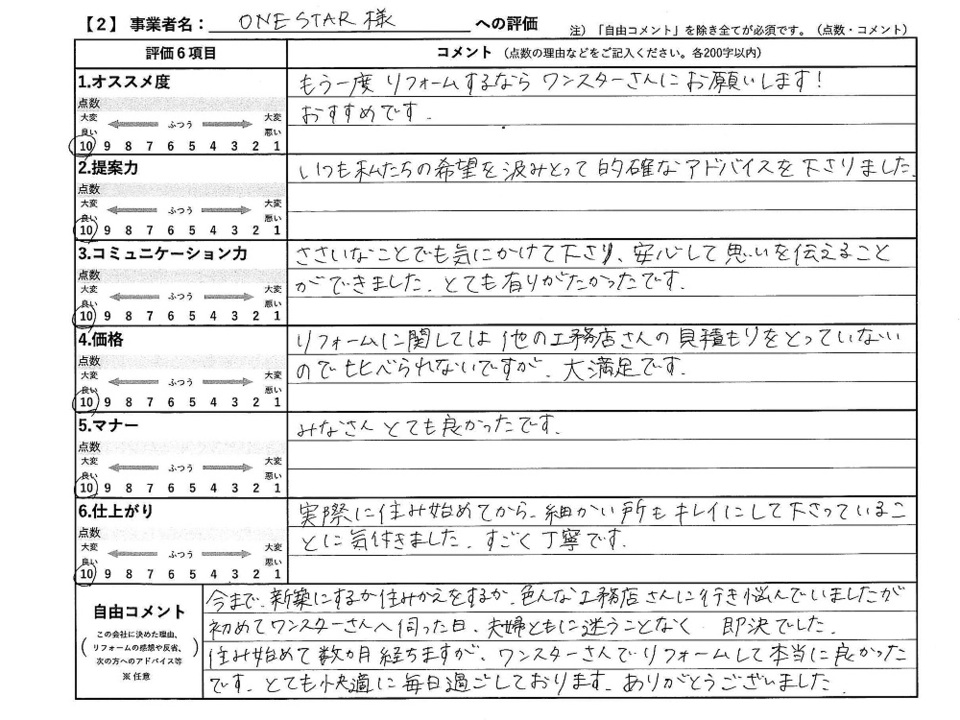 【2】事業者名： ONE STAR 様 への評価
注）「自由コメント」を除き全てが必須です。（点数・コメント）
評価6項目
コメント（点数の理由などをご記入ください。各200字以内）
1.オススメ度
点数
大変良い ふつう 大変悪い
10 9 8 7 6 5 4 3 2 1
もう一度 リフォームするなら ワンスターさんに お願いします！
おすすめです.
2.提案力
点数
大変良い ふつう 大変悪い
10 9 8 7 6 5 4 3 2 1
いつも 私たちの希望を 汲みとって 的確な アドバイスを 下さりました.
3.コミュニケーション力
点数
大変良い ふつう 大変悪い
10 9 8 7 6 5 4 3 2 1
ささいなことでも気にかけて下さり、安心して思いを伝えること
ができました. とても有りがたかったです.
4.価格
点数
大変良い ふつう 大変悪い
10 9 8 7 6 5 4 3 2 1
リフォームに関しては 他の工務店さんの 見積もりをとっていない
ので比べられないですが、大満足です.
5.マナー
点数
大変良い ふつう 大変悪い
10 9 8 7 6 5 4 3 2 1
みなさん とても良かったです.
6.仕上がり
点数
大変良い ふつう 大変悪い
10 9 8 7 6 5 4 3 2 1
実際に住み始めてから、細かい所も キレイにして下さっているこ
とに気付きました. すごく丁寧です.
自由コメント
（この会社に決めた理由、
リフォームの感想や反省、
次の方へのアドバイス等）
※ 任意
今まで、新築にするか住みかえをするか、色んな工務店さんに行き悩んでいましたが
初めてワンスターさんへ伺った日、夫婦ともに迷うことなく 即決でした.
住み始めて数か月経ちますが、ワンスターさんでリフォームして本当に良かった
です. とても快適に毎日過ごしております. ありがとうございました.